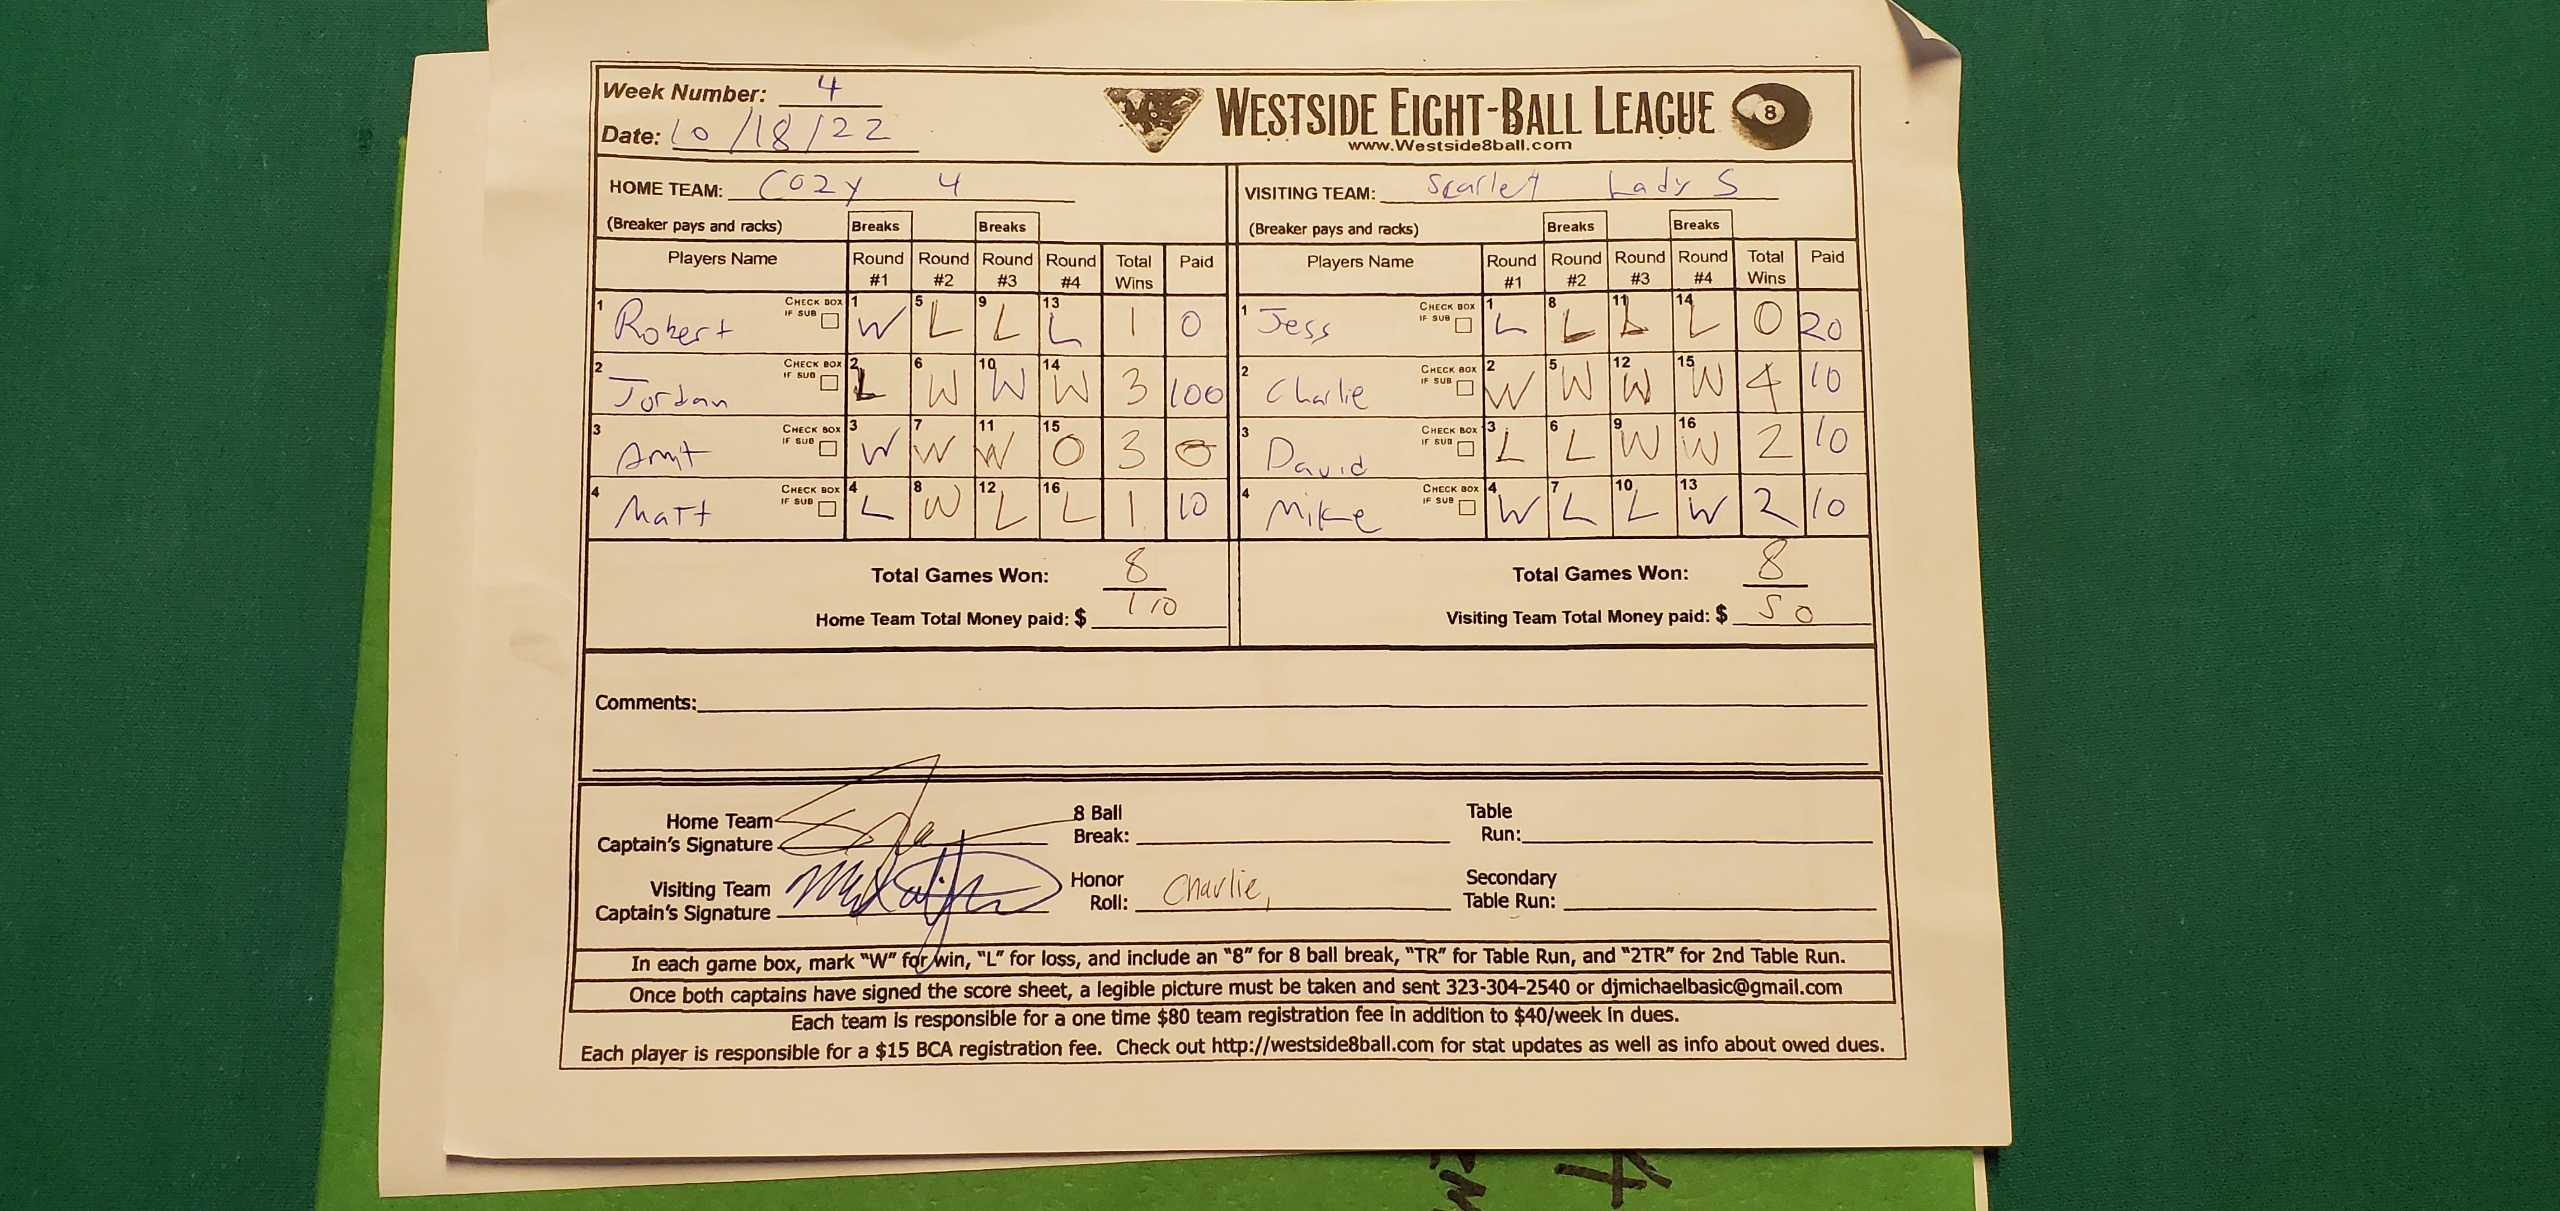 Week Number: 4
Date: 10/18/22
WESTSIDE EIGHT-BALL LEAGUE 8
www.Westside8ball.com
HOME TEAM: Cozy 4 VISITING TEAM: Scarlet Lady S
(Breaker pays and racks) Breaks Breaks (Breaker pays and racks) Breaks Breaks
Players Name Round #1 Round #2 Round #3 Round #4 Total Wins Paid Players Name Round #1 Round #2 Round #3 Round #4 Total Wins Paid
1 Robert CHECK BOX IF SUB 1 W 5 L 9 L 13 L 1 0 1 Jess CHECK BOX IF SUB 1 L 8 L 11 L 14 L 0 20
2 Jordan CHECK BOX IF SUB 2 L 6 W 10 W 14 W 3 100 2 Charlie CHECK BOX IF SUB 2 W 5 W 12 W 15 W 4 10
3 Amit CHECK BOX IF SUB 3 W 7 W 11 W 15 O 3 0 3 David CHECK BOX IF SUB 3 L 6 L 9 W 16 W 2 10
4 Matt CHECK BOX IF SUB 4 L 8 W 12 L 16 L 1 10 4 Mike CHECK BOX IF SUB 4 W 7 L 10 L 13 W 2 10
Total Games Won: 8 Total Games Won: 8
Home Team Total Money paid: $ 110 Visiting Team Total Money paid: $ 50
Comments:
Home Team Captain's Signature 8 Ball Break: Table Run:
Visiting Team Captain's Signature Honor Roll: Charlie, Secondary Table Run:
In each game box, mark "W" for win, "L" for loss, and include an "8" for 8 ball break, "TR" for Table Run, and "2TR" for 2nd Table Run.
Once both captains have signed the score sheet, a legible picture must be taken and sent 323-304-2540 or djmichaelbasic@gmail.com
Each team is responsible for a one time $80 team registration fee in addition to $40/week in dues.
Each player is responsible for a $15 BCA registration fee. Check out http://westside8ball.com for stat updates as well as info about owed dues.